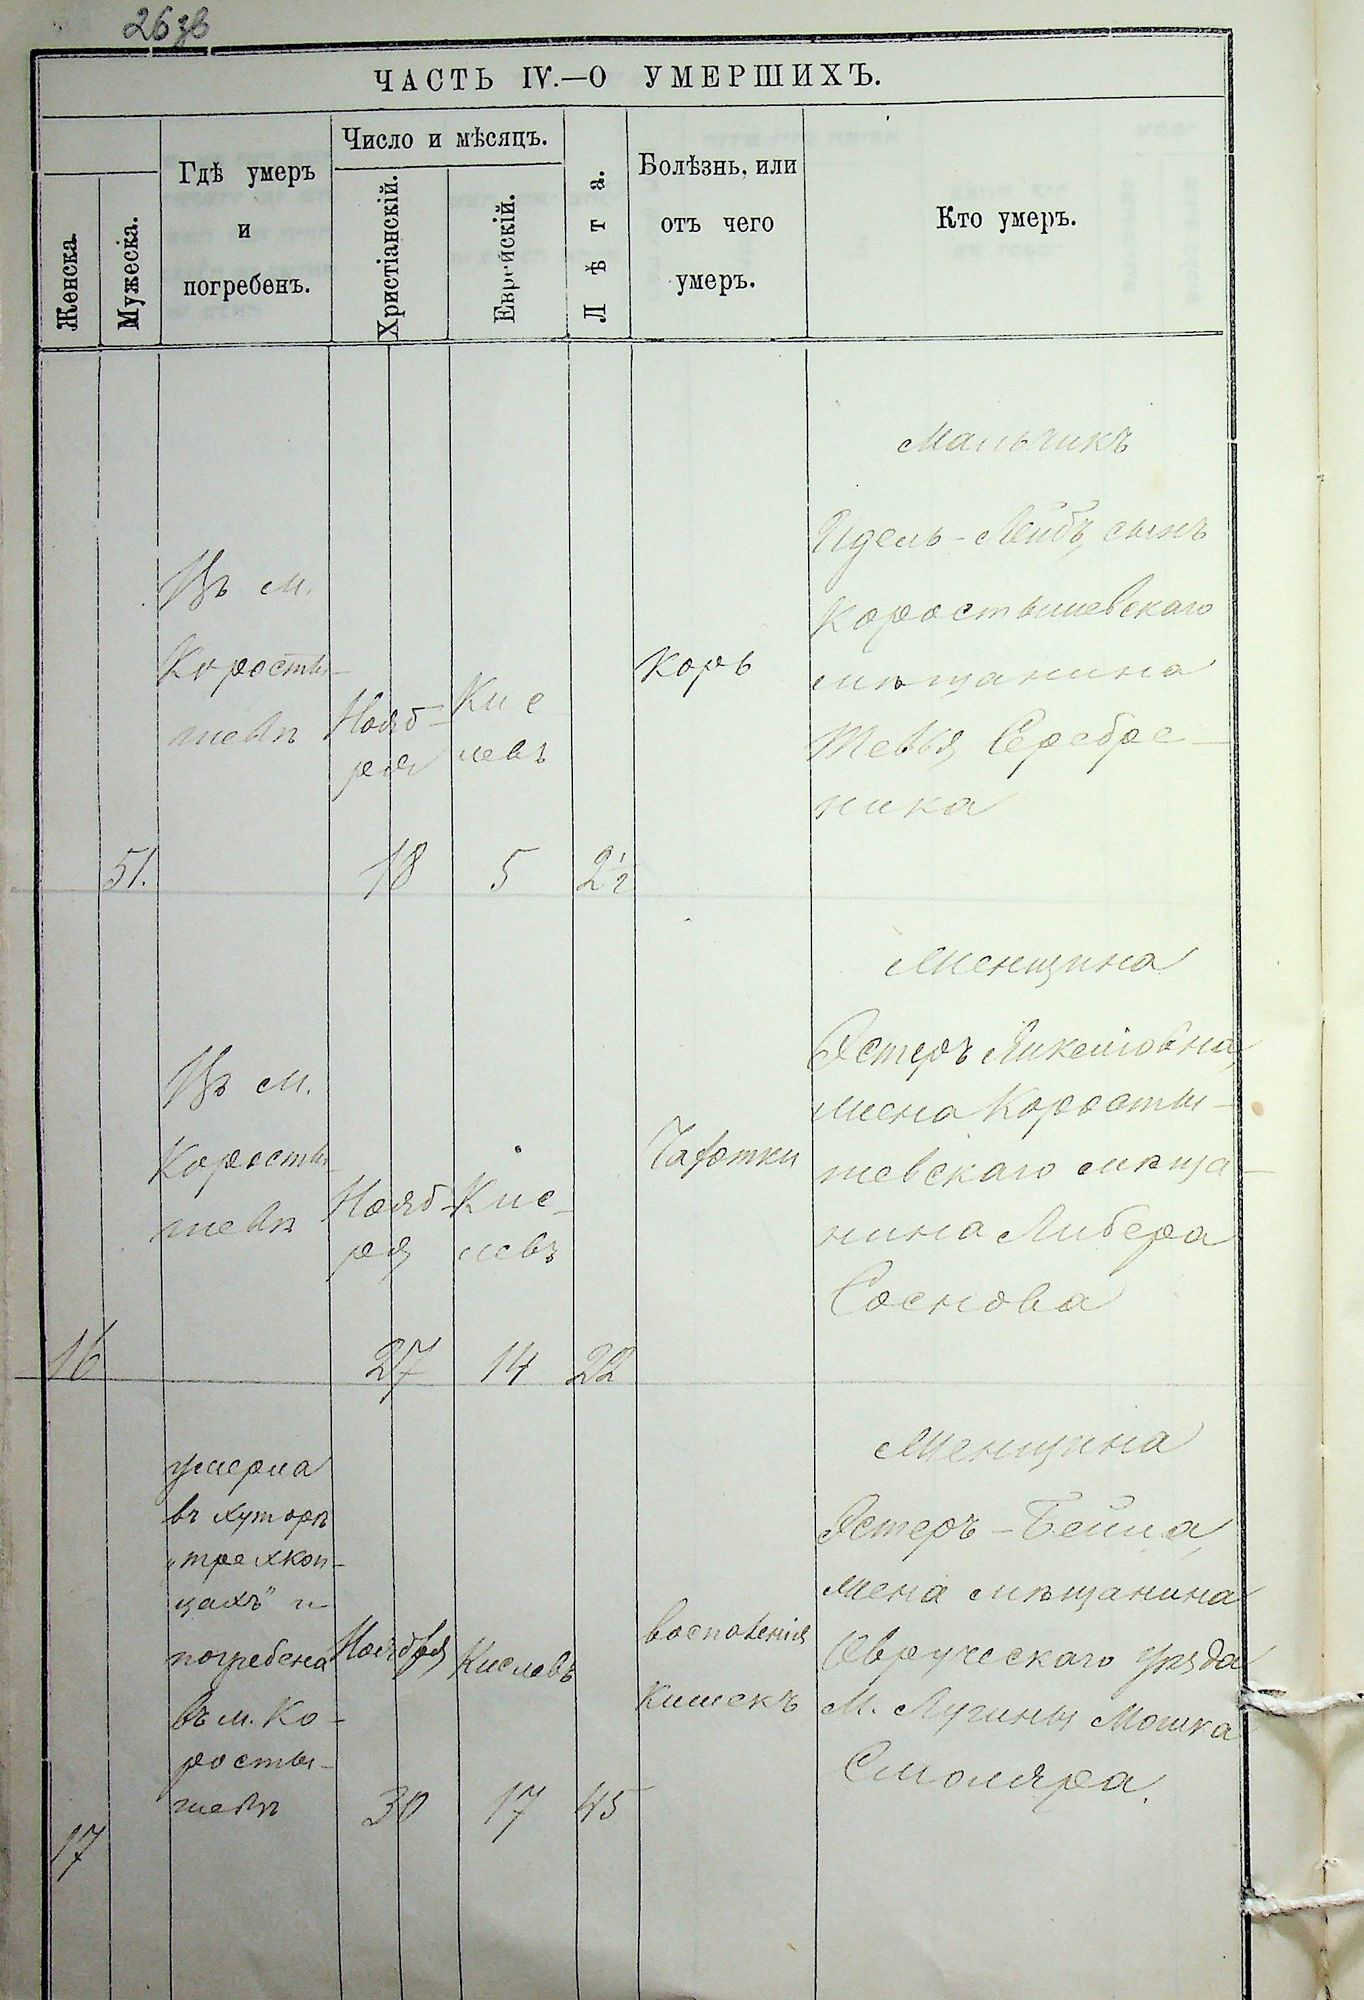 26 зв
ЧАСТЬ IV.—О УМЕРШИХЪ.
Женска.
Мужеска.
Гдѣ умеръ
и
погребенъ.
Число и мѣсяцъ.
Христіанскій.
Еврейскій.
Лѣта.
Болѣзнь, или
отъ чего
умеръ.
Кто умеръ.
51.
Въ м.
Коросты-
шевѣ
Нояб-
ря
18
Кис
левъ
5
2 1/2
Корь
Мальчикъ
Идель-Лейбъ, сынъ
Коростышевскаго
мѣщанина
Тевья Серебре-
ника
16
Въ м.
Коросты-
шевѣ
Нояб-
ря
27
Кис-
левъ
14
22
Чахотки
Женщина
Эстеръ
жена Коросты-
шевскаго мѣща-
нина Либера
Соснова
17
умерла
въ хуторѣ
„трехкон-
цахъ" и
погребена
въ м. Ко-
росты-
шевѣ
Ноября
30
Кислевъ
17
45
воспаления
кишекъ
Женщина
Эстеръ-Бейла,
жена мѣщанина
Овручскаго уѣзда
М. Лугины Мошка
Смоляра.